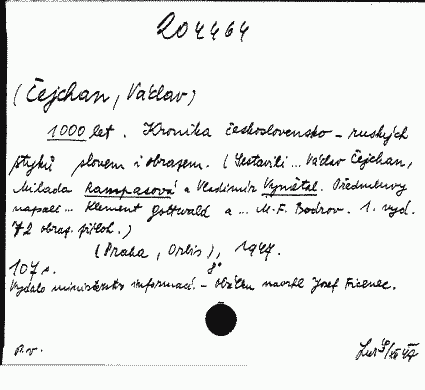 204464
(Čejchan, Václav)
1000 let. Kronika československo-ruských
styků slovem i obrazem. (Sestavili... Václav Čejchan,
Milada Kampasová a Vladimír Vynátal. Předmluvy
napsali... Klement Gottwald a ... M. F. Bodrov. 1. vyd.
72 obraz. příloh.)
(Praha, Orbis), 1947.
107 s. 8°
Vydalo ministerstvo informací. - Obálku navrhl Josef Ficenec.
R. v.